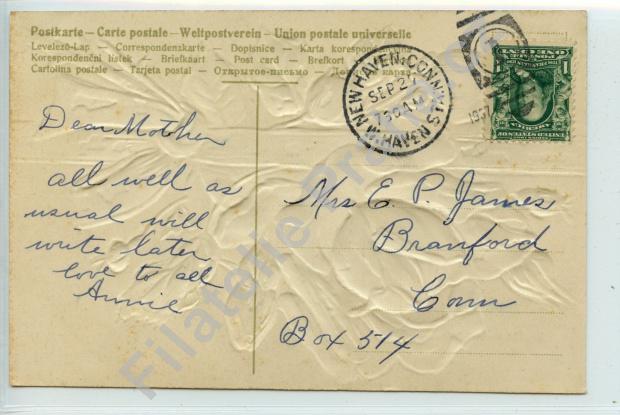 Postkarte – Carte postale – Weltpostverein – Union postale universelle
Levelező-Lap – Correspondenzkarte – Dopisnice – Karta korespond
Korespondenční lístek – Briefkaart – Post card – Brefkort
Cartolina postale – Tarjeta postal – Открытое письмо –
NEW HAVEN, CONN.
SEP 21
7 30 AM
W. HAVEN STA
1907
1
Dear Mother
all well as
usual will
write later
love to all
Annie
Mrs E. P. James
Branford
Conn
Box 514
Filatelie Praga